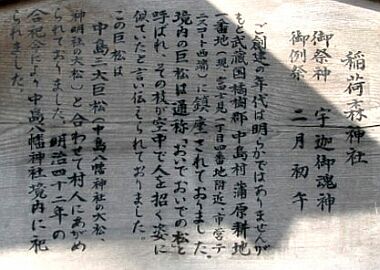 稲荷森神社
御祭神 宇迦御魂神
御例祭 二月初午
ご創建の年代は明らかではありませんが
もと武蔵国橘樹郡中島村蒲原耕地
一番地(現、富士見一丁目四番地附近、市営テ
ニスコート西端)に鎮座されておりました。
境内の巨松は通称「おいでおいでの松と
呼ばれ、その枝が空中で人を招く姿に
似ていたと言い伝えられておりました。
この巨松は
中島三大巨松(中島八幡神社の大松、
神明社の大松)と合わせて村人にあがめ
られておりました。明治四十二年の
合祀令により中島八幡神社境内に祀
られました。